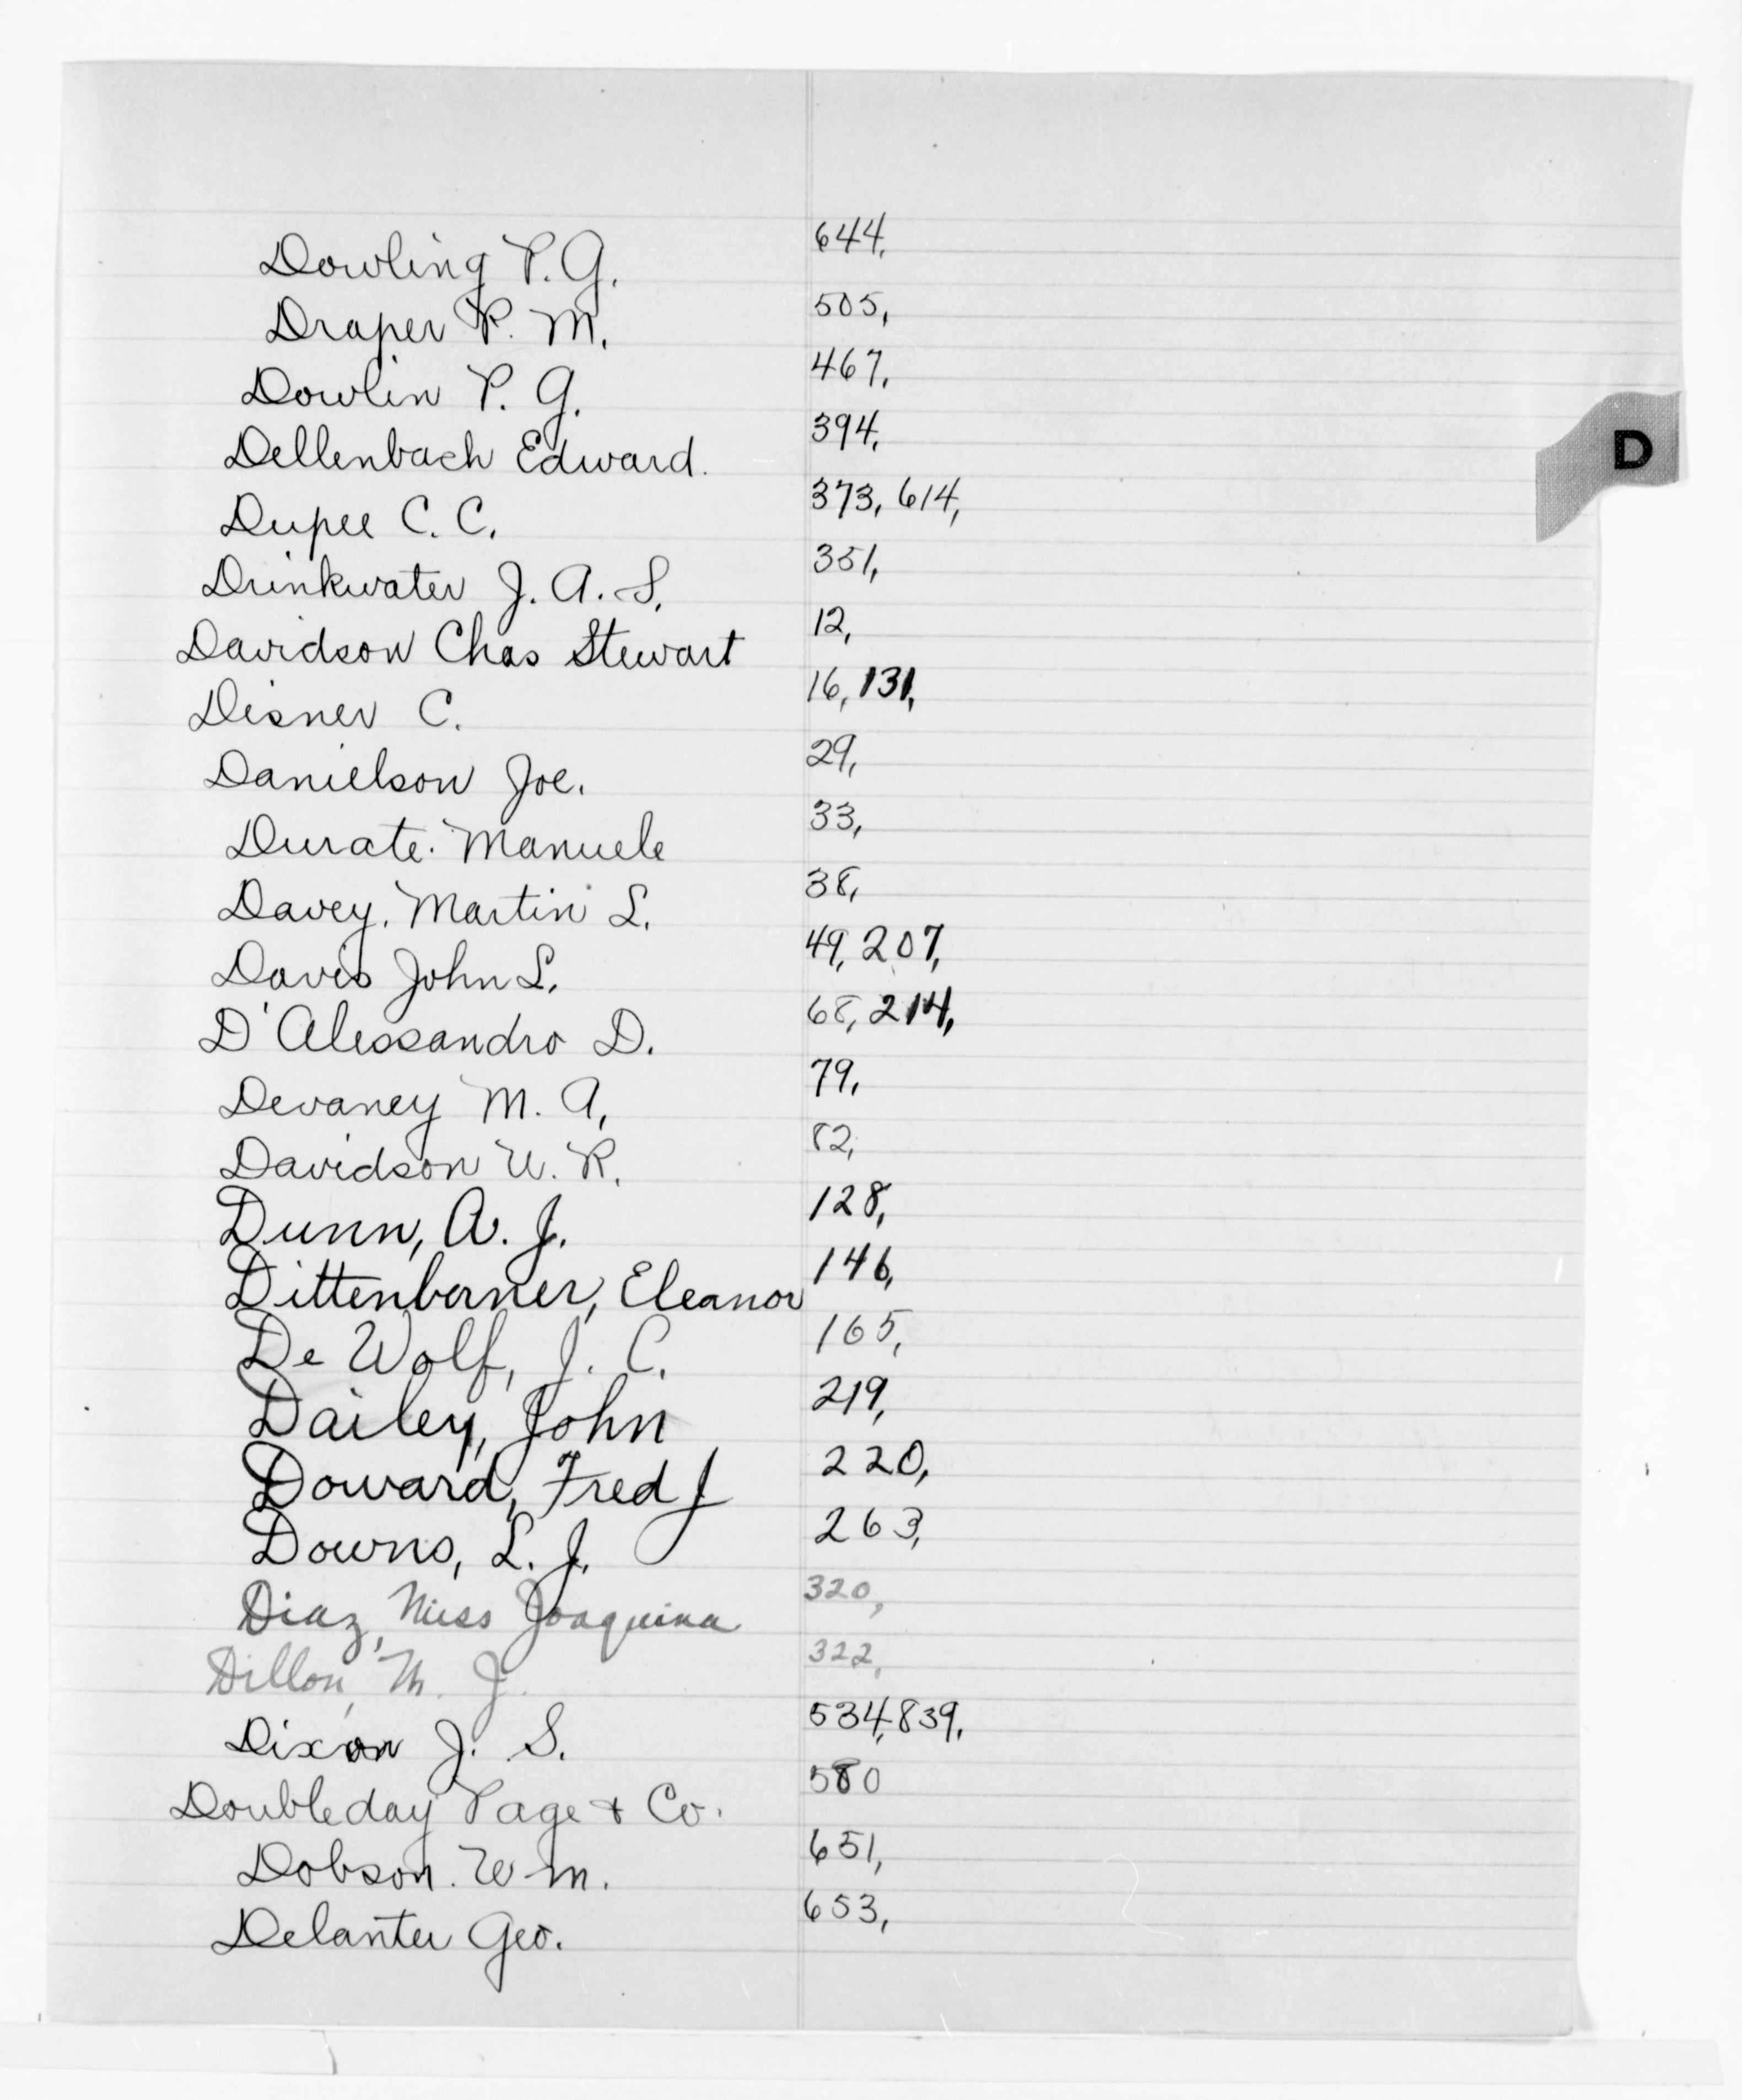 Dowling P. G. 644,
Draper P. M. 505,
Dowlin P. G. 467,
Dellenbach Edward. 394,
D
Dupee C. C. 373, 614,
Drinkwater J. A. S. 351,
Davidson Chas Stewart 12,
Disner C. 16, 131,
Danielson Joe. 29,
Durate. Manuele 33,
Davey. Martin L. 38,
Davis John L. 49, 207,
D'Alessandro D. 68, 214,
Devaney M. A, 79,
Davidson W. R. 82,
Dunn, A. J. 128,
Dittenberner, Eleanor 146,
De Wolf, J. C. 165,
Dailey, John 219,
Doward, Fred J 220,
Downs, L. J. 263,
Diaz, Miss Joaquina 320,
Dillon, M. J. 322,
Dixon J. S. 534, 839,
Doubleday Page + Co. 580
Dobson. Wm. 651,
Delanter Geo. 653,